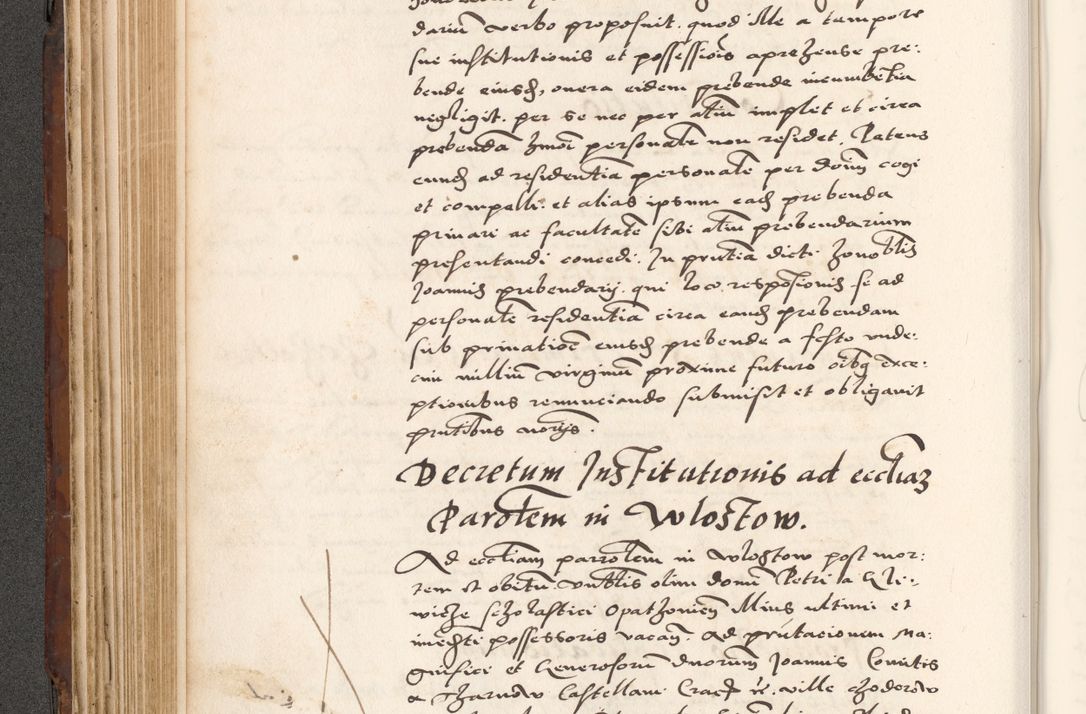 darium verbo proposuit. quod ille a tempore
sue institutionis et possessiois aprehense pre:
bende eiusd, onera eidem prebende incumbetia
negligit. per se nec per aliu implet et circa
prebenda hmoi personale non residet. Petens
eund ad residentia personale per doim cogi
et compelli. et alias ipsum ead prebenda
privari ac facultate sibi aliu prebendarium
presentandi concedi. In pntia dicti honoblis
Joannis prebendarij. qui loco responsionis se ad
personale residentia circa eand prebendam
sub privatioe eiusd prebende a festo unde:
cim millium virginum proxime futuro oibq exce:
ptionibus renunciando submisit et obligavit
pntibus
Decretum Institutionis ad eccliaz
Parolem in Wlostow.
Ad eccliam parrolem in Wlostow post mor:
tem et obitu vnblis olim domi Petri a Gli:
wicze scholastici Opathovien Illius ultimi et
imediti possessoris vacan. ad pntacionem Ma:
gnifici et Generosorum dnorum Joannis Comitis
a Tharnow Castellani Crac. ville Chodorow